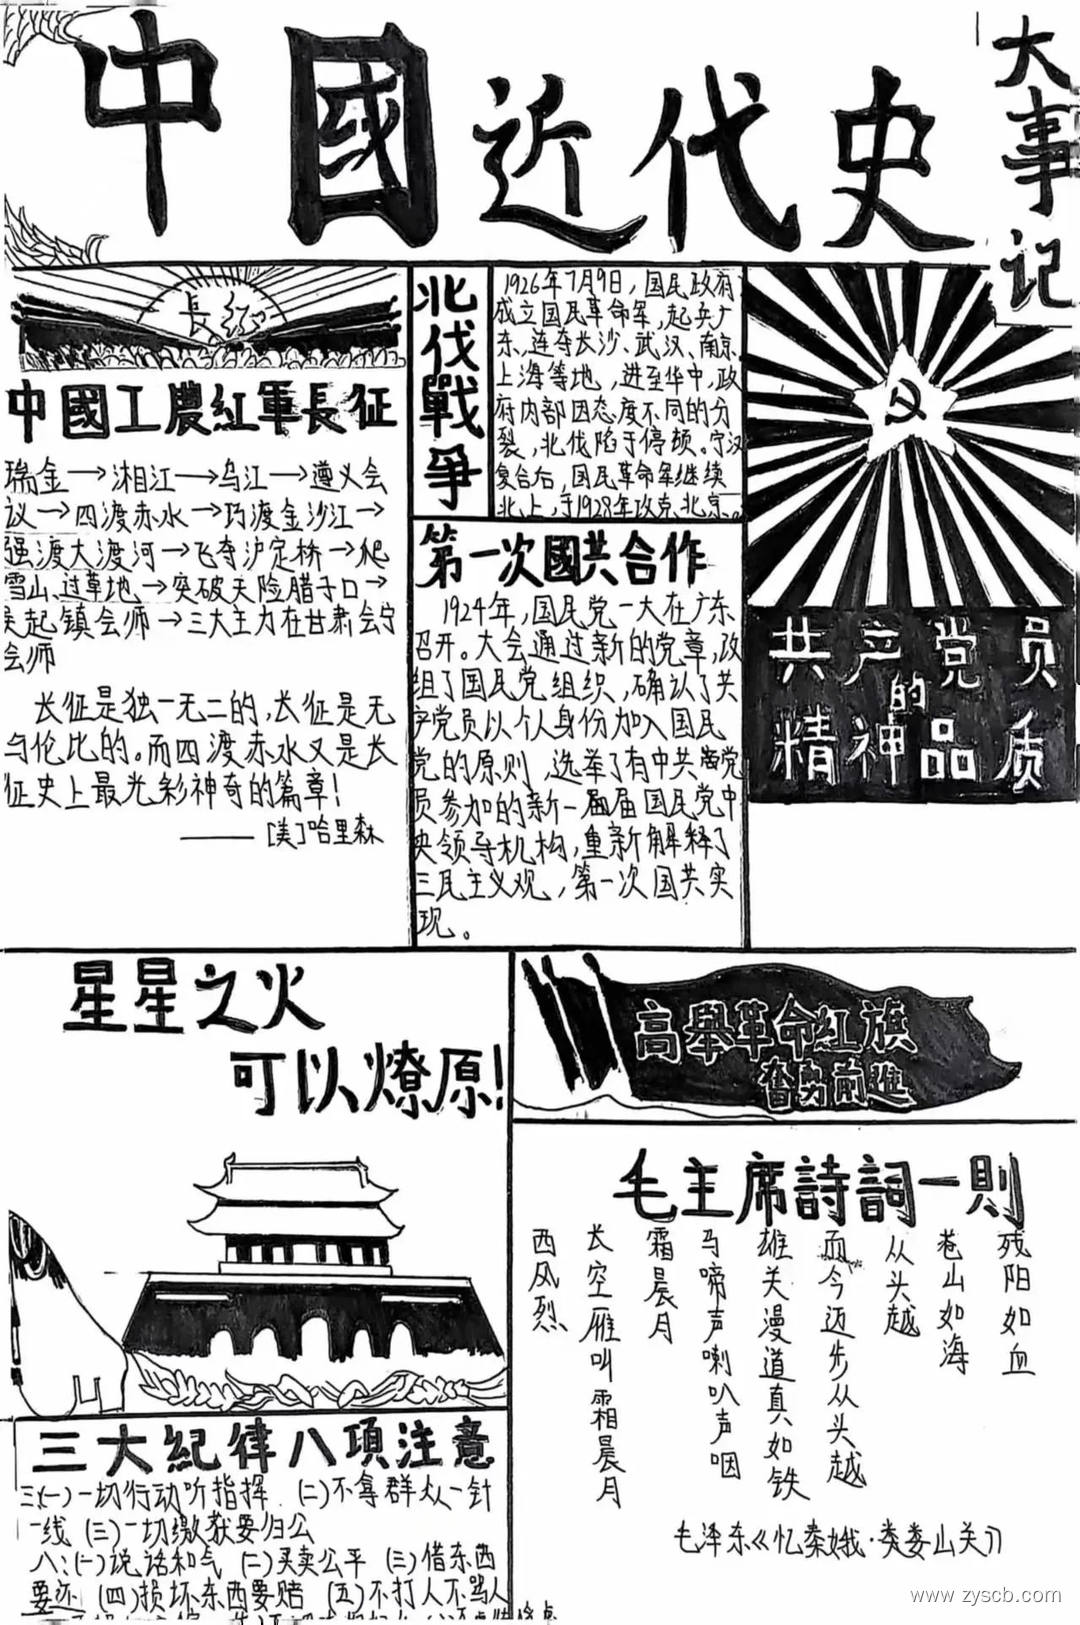 中國近代史
大事记
長征
中國工農紅軍長征
瑞金→湘江→乌江→遵义会
议→四渡赤水→巧渡金沙江→
强渡大渡河→飞夺沪定桥→爬
雪山、过草地→突破天险腊子口→
吴起镇会师→三大主力在甘肃会宁
会师
长征是独一无二的,长征是无
与伦比的。而四渡赤水又是长
征史上最光彩神奇的篇章!
——[美]哈里森
北伐戰爭
1926年7月9日,国民政府
成立国民革命军,起兵广
东,连夺长沙、武汉、南京、
上海等地,进至华中,政
府内部因态度不同的分
裂,北伐陷于停顿。宁汉
复合后,国民革命军继续
北上,于1928年攻克北京。
第一次國共合作
1924年,国民党一大在广东
召开。大会通过新的党章,改
组了国民党组织,确认了共
产党员以个人身份加入国民
党的原则,选举了有中共党
员参加的新一届国民党中
央领导机构,重新解释了
三民主义观,第一次国共实
现。
共产党员
的
精神品质
星星之火
可以燎原!
高舉革命紅旗
奮勇前進
毛主席詩詞一則
西风烈
长空雁叫霜晨月
霜晨月
马啼声喇叭声咽
雄关漫道真如铁
而今迈步从头越
从头越
苍山如海
残阳如血
毛泽东《忆秦娥·娄山关》
三大紀律八項注意
三:(一)一切行动听指挥 (二)不拿群众一针
一线 (三)一切缴获要归公
八:(一)说话和气 (二)买卖公平 (三)借东西
要还 (四)损坏东西要赔 (五)不打人不骂人
www.zyscb.com